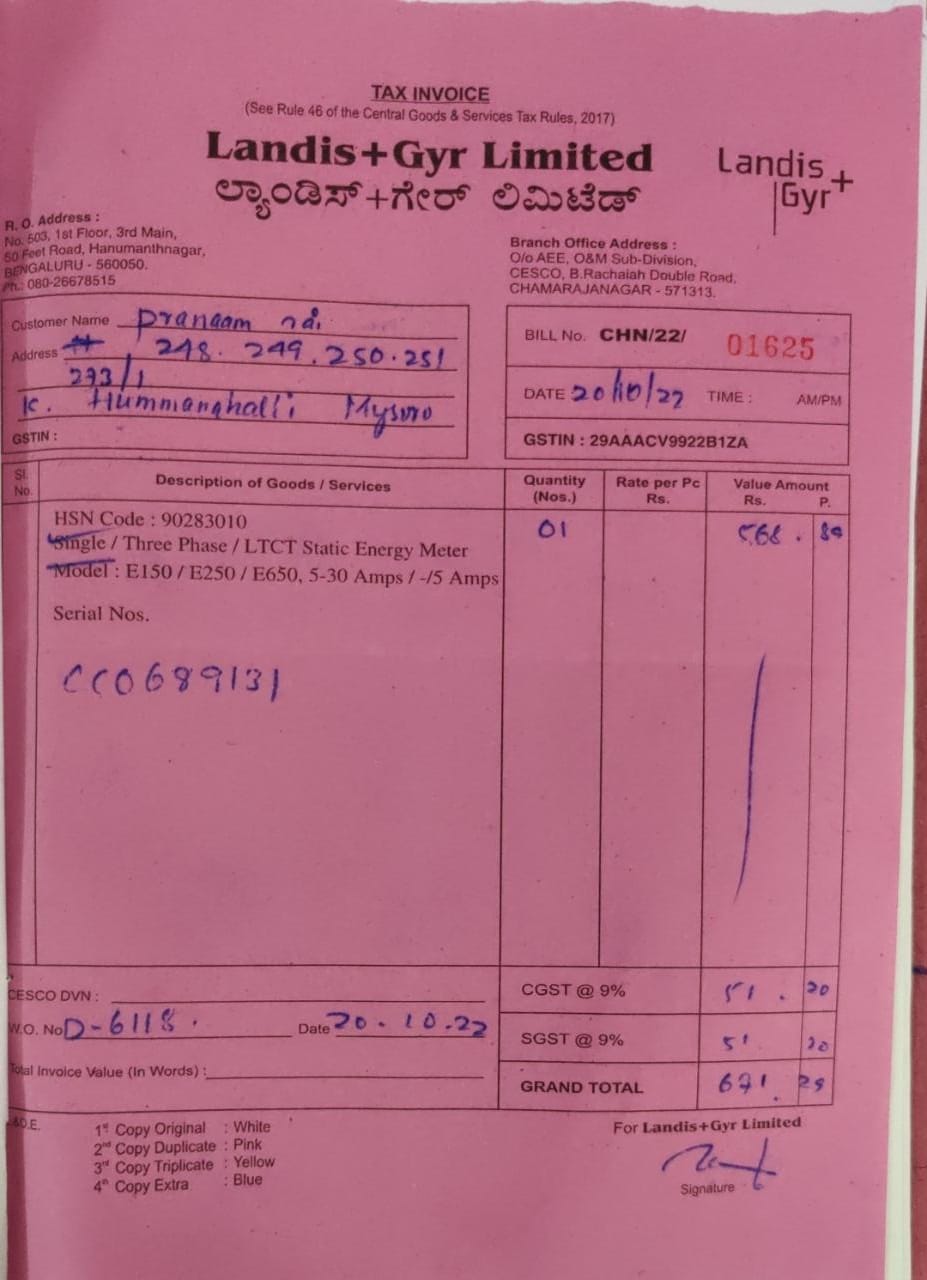 TAX INVOICE
(See Rule 46 of the Central Goods & Services Tax Rules, 2017)
Landis+Gyr Limited
ಲ್ಯಾಂಡಿಸ್+ಗೇರ್ ಲಿಮಿಟೆಡ್
Landis+
Gyr
R. O. Address :
No. 503, 1st Floor, 3rd Main,
50 Feet Road, Hanumanthnagar,
BENGALURU - 560050.
Ph.: 080-26678515
Branch Office Address :
O/o AEE, O&M Sub-Division,
CESCO, B.Rachaiah Double Road,
CHAMARAJANAGAR - 571313.
Customer Name Pranaam
Address 248. 249. 250. 251
273/1
K. Hummanghalli Mysuro
GSTIN :
BILL No. CHN/22/ 01625
DATE 20/10/22 TIME : AM/PM
GSTIN : 29AAACV9922B1ZA
Sl. No. Description of Goods / Services Quantity (Nos.) Rate per Pc Rs. Value Amount Rs. P.
HSN Code : 90283010 01 568. 89
Single / Three Phase / LTCT Static Energy Meter
Model : E150 / E250 / E650, 5-30 Amps / -/5 Amps
Serial Nos.
CC0689131
CESCO DVN :
CGST @ 9% 51. 20
W.O. No D-6118. Date 20.10.22
SGST @ 9% 51 20
Total Invoice Value (In Words) :
GRAND TOTAL 671. 29
&O.E.
1st Copy Original : White
2nd Copy Duplicate : Pink
3rd Copy Triplicate : Yellow
4th Copy Extra : Blue
For Landis+Gyr Limited
Signature